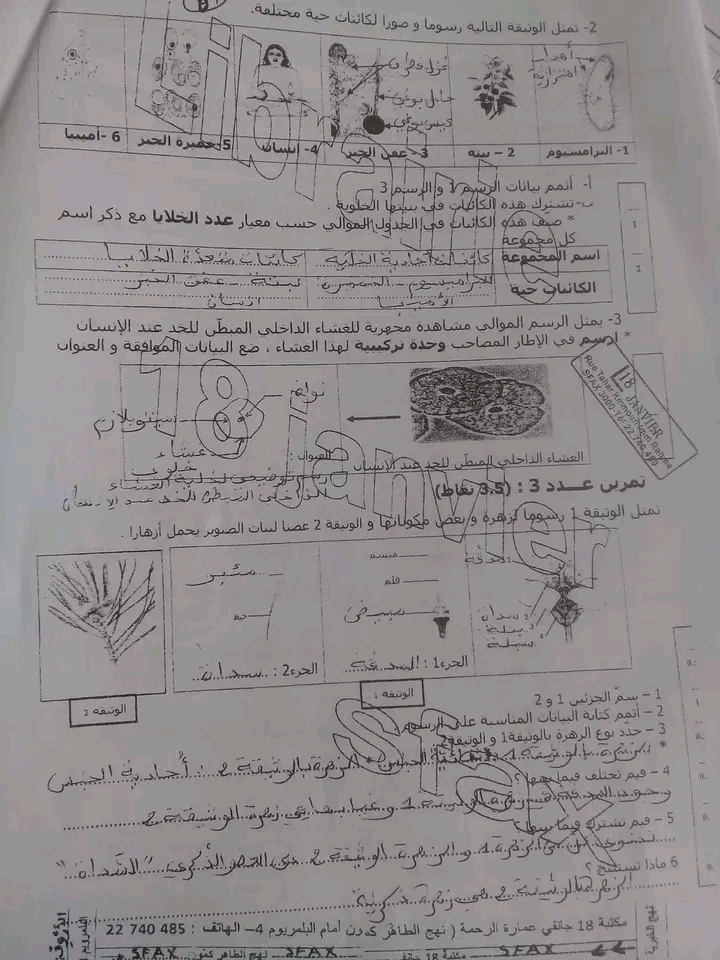 2- تمثل الوثيقة التالية رسوما و صورا لكائنات حية مختلفة.
أهداب
اهتزازية
غزل فطري
حامل بوغي
كيس بوغي
1- البرامسيوم
2 – نبتة
3- عفن الخبز
4- إنسان
5- خميرة الخبز
6- أميبيا
أ- أتمم بيانات الرسم 1 و الرسم 3
ب- تشترك هذه الكائنات في بنيتها الخلوية.
* صنف هذه الكائنات في الجدول الموالي حسب معيار عدد الخلايا مع ذكر اسم
كل مجموعة
اسم المجموعة
كائنات أحادية الخلية
كائنات متعددة الخلايا
الكائنات حية
البراميسيوم - الخميرة
الأميبيا
نبتة - عفن الخبز
إنسان
3- يمثل الرسم الموالي مشاهدة مجهرية للغشاء الداخلي المبطن للخد عند الإنسان
* ارسم في الإطار المصاحب وحدة تركيبية لهذا الغشاء ، ضع البيانات الموافقة و العنوان
نواة
سيتوبلازم
غشاء
خلوي
الغشاء الداخلي المبطن للخد عند الإنسان
العنوان :
رسم توضيحي لخلية الغشاء
الداخلي المبطن للخد عند الإنسان
18 JANVIER
Rue Taher Kammoun Imm. Rahma
SFAX 3000-Tél:22.740.485
تمرين عـــدد 3 : (3.5 نقاط)
تمثل الوثيقة 1 رسوما لزهرة و بعض مكوناتها و الوثيقة 2 غصنا لنبات الصنوبر يحمل أزهارا .
المدقة
سداة
بتلة
سبلة
ميسم
قلم
مبيض
الجزء1 : المدقة
مئبر
الجزء2 : سداة
الوثيقة 1
الوثيقة 2
1 – سمّ الجزئين 1 و 2
2 – أتمم كتابة البيانات المناسبة على الرسوم.
3 – حدّد نوع الزهرة بالوثيقة1 و الوثيقة2
الزهرة بالوثيقة 2 : أحادية الجنس
4 – فيم تختلف فيما بينها؟
وجود المدقة في زهرة الوثيقة 1 و غيابها في زهرة الوثيقة 2
5 – فيم تشترك فيما بينها؟
تحتوي كل من الزهرة 1 و الزهرة الوثيقة 2 على العضو الذكري "السداة"
6 ماذا تستنتج ؟
الزهرة الوثيقة 2 هي زهرة ذكرية
مكتبة 18 جانفي عمارة الرحمة ( نهج الطاهر كمون أمام البلمريوم 4– الهاتف : 485 740 22
SFAX
SFAX
SFAX
librairie
18 janvier
sfax